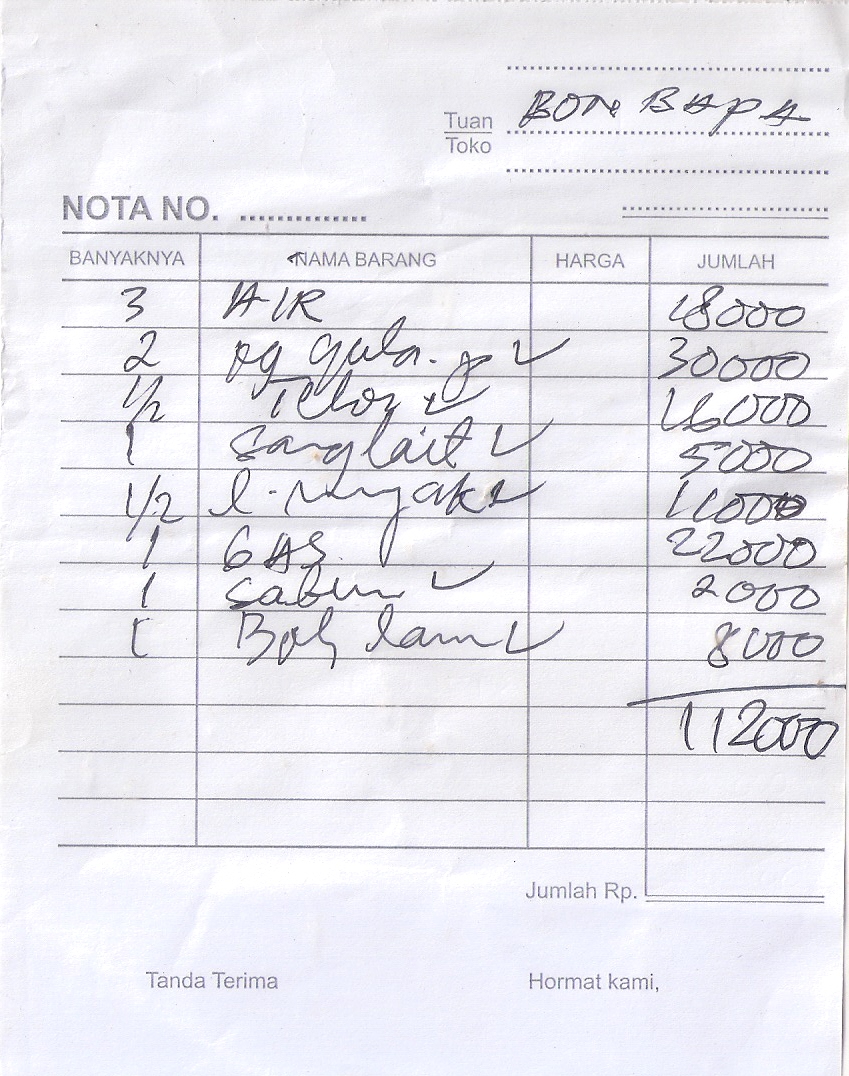 BON BAPA
Tuan
Toko
NOTA NO.
BANYAKNYA NAMA BARANG HARGA JUMLAH
3 AIR 18000
2 gula 30000
1/2 Telor 16000
1 5000
1/2 11000
1 GAS 22000
1 Sabun 2000
1 8000
112000
Jumlah Rp.
Tanda Terima Hormat kami,